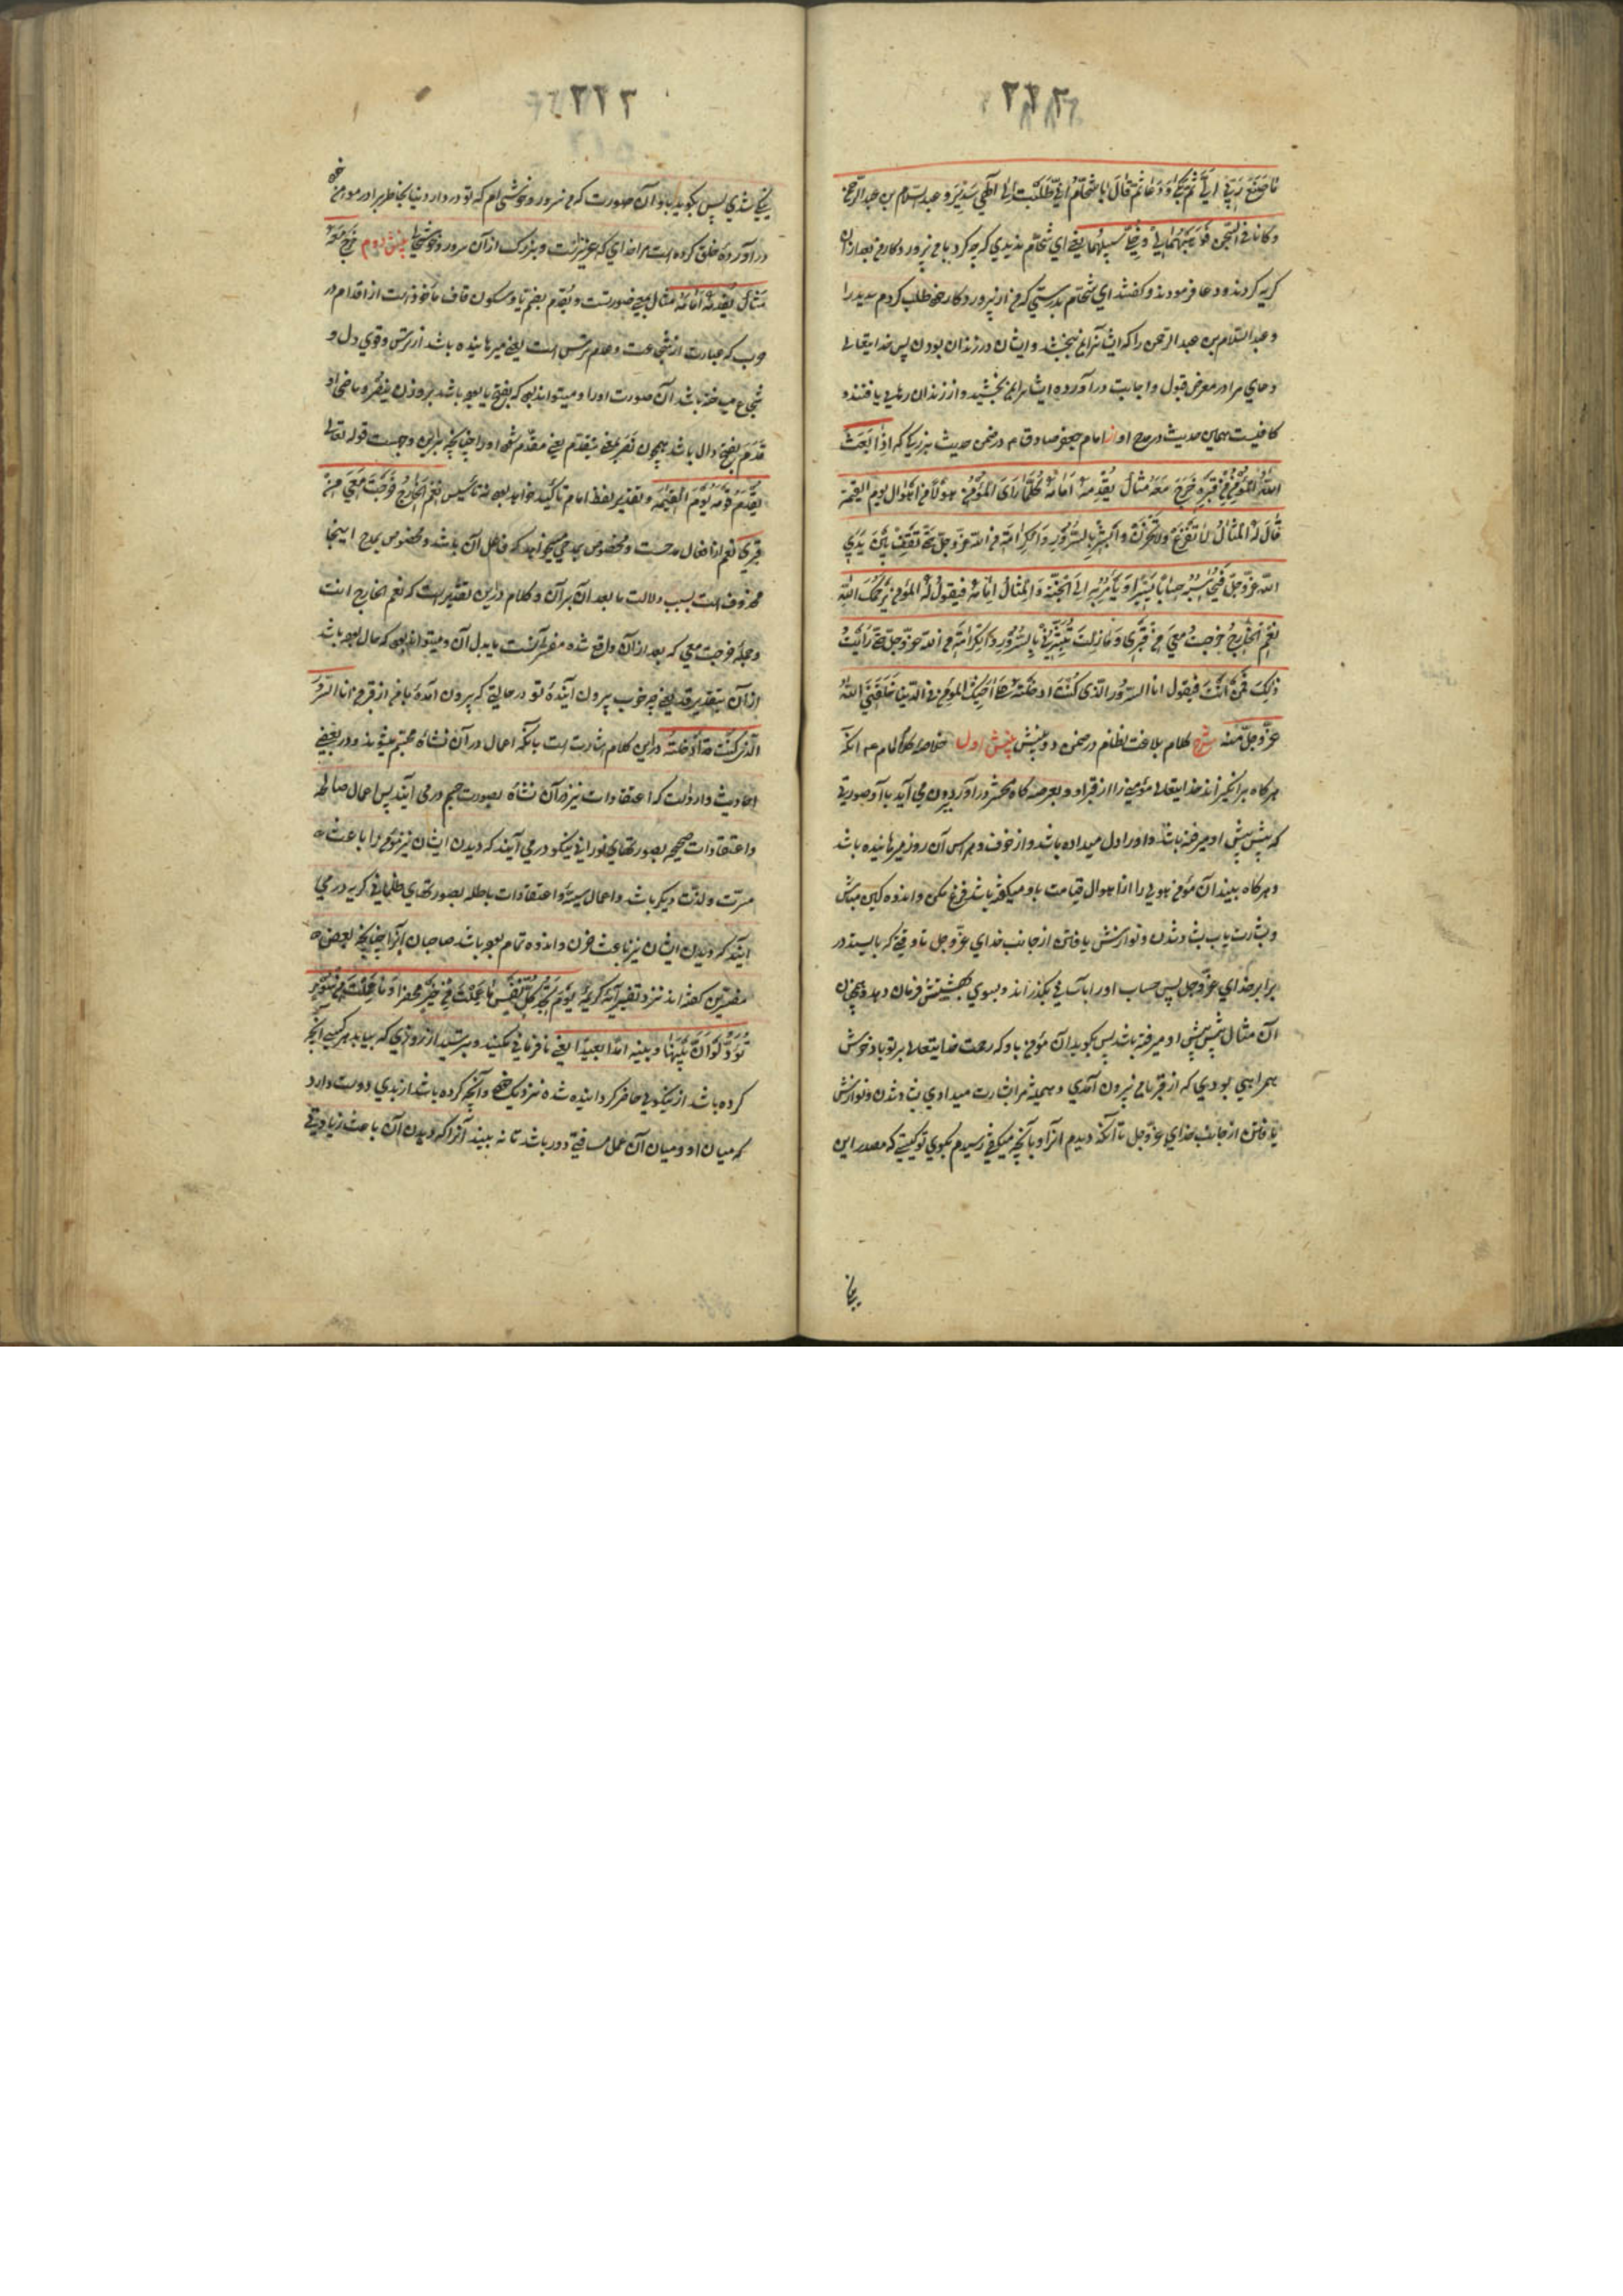 ما صنع ربی الیّ ثم بکی و دعا ثم قال یا شحّام انّی طلبت الی الهی سدیر و عبد السلام بن عبد الرحمن
و کانا فی السجن فوهبهما لی و خلّی سبیلهما یعنی ای شحّام ندیدی که چه کرد با من پرورد کار من بعد ازان
کریه کردند و دعا فرمودند و کفتند ای شحّام بدرستی که من از پرورد کار خود طلب کردم سدیر را
و عبد السّلام بن عبد الرحمن را که ایشانرا بمن ببخشد و ایشان در زندان بودن پس خدایتعالی
دعای مرا در معرض قبول و اجابت در آورده ایشانرا بمن بخشید و از زندان رهایی یافتند و
کافیست همین حدیث در مدح او از امام جعفر صادق ع م در ضمن حدیث بزرکیا که اذا بعث
الله المؤمن من قبره خرج معه مثال یقدمه امامه کلّما رای المؤمن هولا من اهوال یوم القیمة
قال له المثال لا تفزع و لا تحزن و ابشر بالسّرور و الکرامة من الله عزّ و جلّ حتّی تقف بین یدی
الله عزّ و جلّ فیحاسبه حسابا یسیرا و یامر به الی الجنّة و المثال امامه فیقول له المؤمن یرحمک الله
نعم الخارج خرجت معی من قبری و ما زلت تبشّرنی بالسّرور و الکرامة من الله عزّ و جلّ حتّی رایت
ذلک فمن انت فیقول انا السّرور الذی کنت ادخلته علی اخیک المؤمن فی الدنیا خلقنی الله
عزّ و جلّ منه شرح کلام بلاغت نظام در ضمن دو بینش بینش اول خلاصه کلام امام ع م انکه
هر کاه برانکیزاند خدایتعالی مؤمن را از قبر او و بعرصه کاه محشر در آورد بیرون می آید با او صورتی
که پیش پیش او میرفته باشد و او را دل میداده باشد و از خوف و هراس آن روز میرهانیده باشد
و هر کاه ببیند آن مؤمن هولی را از اهوال قیامت باو میکفته باشد فزع مکن و اندوه کین مباش
و بشارت یاب بشاد شدن و نوازش یافتن از جانب خدای عزّ و جل تا وقتی که بایستد در
برابر خدای عزّ و جل پس حساب او را بآسانی بکذراند و بسوی بهشتش فرمان دهد و همچنان
آن مثال پیش پیش او میرفته باشد پس بکوید آن مؤمن باو که رحمت خدایتعالی بر تو باد خوش
همراهی بودی که از قبر با من بیرون آمدی و همیشه مرا بشارت میدادی بشاد شدن و نوازش
یافتن از جانب خدای عزّ و جل تا آنکه دیدم انرا و بانچه میکفتی رسیدم بکوی تو کیستی که مصدر این
نیکی شدی پس بکوید باو آن صورت که من سرور و خوشی ام که تو در دار دنیا بخاطر برادر مومن خود
در آورده خلق کرده است مرا خدای که عزیز است و بزرک از آن سرور و خوشیها بینش دوم خرج معه
مثال یقدمه امامه مثال بمعنی صورتست و یقدم بضم یا و سکون قاف ماخوذ است از اقدام در
حرب که عبارت از شجاعت و عدم ترس است یعنی میرهانیده باشد از ترس و قوی دل و
شجاع میساخته باشد آن صورت او را و میتواند بود که بفتح یا بوده باشد بر وزن ینصر و ماضی او
قدم بفتح دال باشد همچون نصر بمعنی یتقدم یعنی مقدم شود او را چنانچه بر این وجهست قوله تعالی
یقدم قومه یوم القیمه و بتقدیر لفظ امام تاکید خواهد بود نه تاسیس نعم الخارج خرجت معی من
قبری نعم از افعال مدحست و مخصوص بمدحی میخواهد که فاعل آن باشد و مخصوص بمدح اینجا
محذوف است بسبب دلالت ما بعد آن بر آن و کلام در این تقدیر است که نعم الخارج انت
و جمله خرجت معی که بعد از آن واقع شده مفسّر آنست یا بدل آن و میتواند بود که حال بوده باشد
از آن بتقدیر قد یعنی چه خوب بیرون آینده تو در حالتی که بیرون آمده با من از قبر من انا السّرور
الّذی کنت ادخلته در این کلام اشارت است بانکه اعمال در آن نشاه مجسّم میشوند و در بعضی
احادیث وارداست که اعتقادات نیز در آن نشاه بصورت جسم در می آیند پس اعمال صالحه
و اعتقادات صحیحه بصورتهای نورانی نیکو در می آیند که دیدن ایشان نیز مؤمن را باعث
مسرّت و لذّت دیکر باشد و اعمال سیّئه و اعتقادات باطله بصورتهای ظلمانی کریه در می
آیند که دیدن ایشان نیز باعث حزن و اندوه تمام بوده باشد صاحبان آنرا چنانچه بعضی
مفسّرین کفته اند نزد تفسیر آیه کریمه یوم تجد کلّ نفس ما عملت من خیر محضرا و ما عملت من سوء
تودّ لو انّ بینها و بینه امدا بعیدا یعنی نافرمانی مکنید و بترسید از روزی که بیابد هر کسی انچه
کرده باشد از نیکویی حاضر کردانیده شده نزدیک خود و آنچه کرده باشد از بدی دوست دارد
که میان او و میان آن عمل مسافتی دور باشد تا نه ببیند آنرا که دیدن آن باعث زیادتی